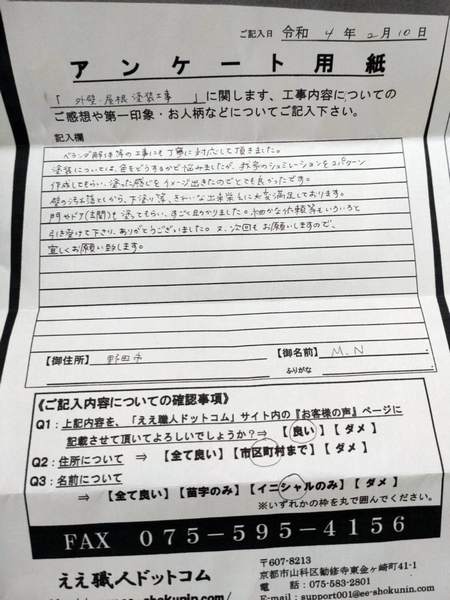 ご記入日 令和 4 年 2月 10日
アンケート用紙
「 外壁・屋根 塗装工事 」に関します、工事内容についての
ご感想や第一印象・お人柄などについてご記入下さい。
記入欄
ベランダ解体等の工事にも丁寧に対応して頂きました。
塗装については、色をどうするかで悩みましたが、我家のシュミレーションを2パターン
作成してもらい、塗った感じをイメージ出来たのでとても良かったです。
壁の汚れ落としから、下塗り等、きれいな出来栄えに大変満足しております。
門やドア(玄関)も塗ってもらい、すごく助かりました。細かな依頼等もいろいろと
引き受けて下さり、ありがとうございました。又、次回もお願いしますので、
宜しくお願い致します。
【御住所】 野田市 【御名前】 M.N
ふりがな
《ご記入内容についての確認事項》
Q1：上記内容を、「ええ職人ドットコム」サイト内の『お客様の声』ページに
記載させて頂いてよろしいでしょうか？⇒ 【良い】 【ダメ】
Q2：住所について ⇒ 【全て良い】【市区町村まで】【ダメ】
Q3：名前について
⇒ 【全て良い】【苗字のみ】【イニシャルのみ】【ダメ】
※いずれかの枠を丸で囲んでください。
FAX 075-595-4156
ええ職人ドットコム
ee-shokunin.com/
〒607-8213
京都市山科区勧修寺東金ヶ崎町41-1
電話：075-583-2801
E-mail：support001@ee-shokunin.com